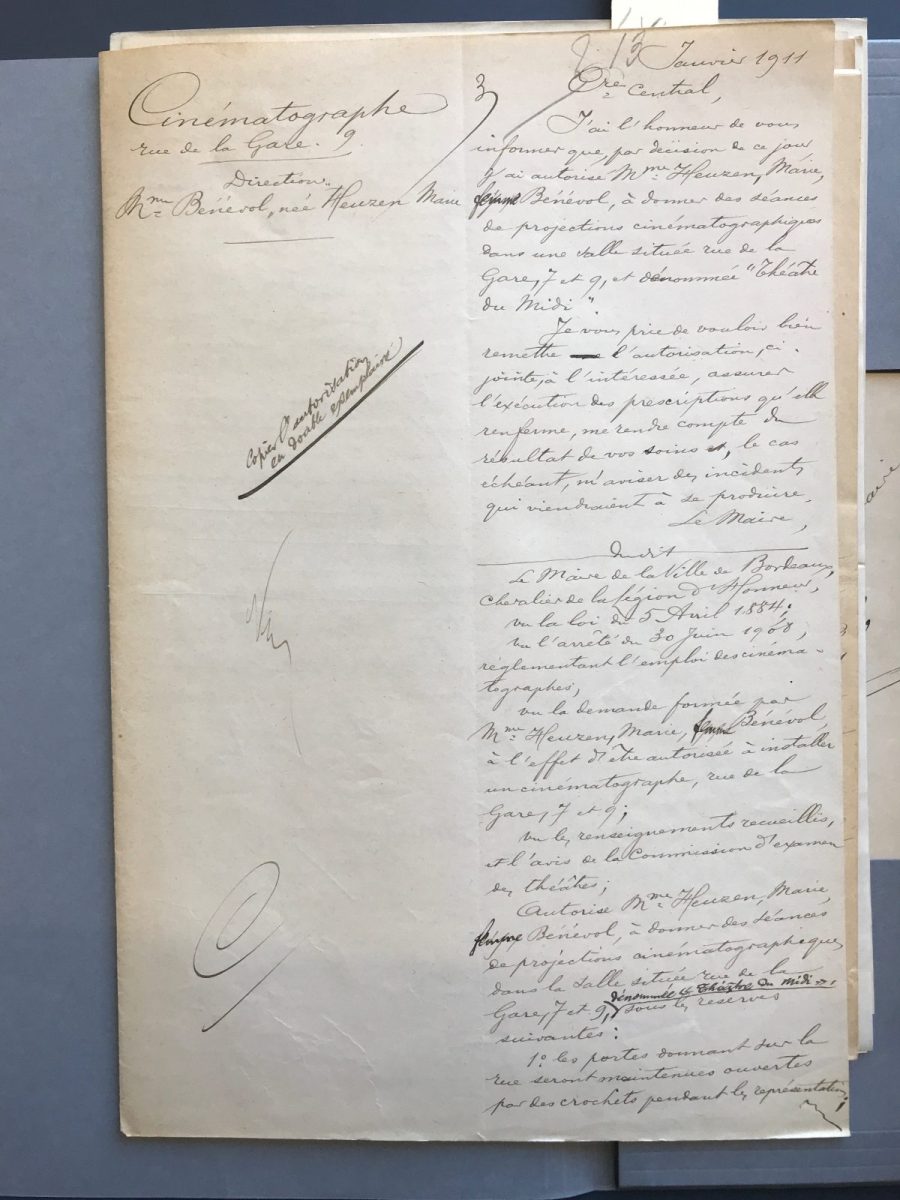 Cinématographe
rue de la Gare. 9.
Direction..
Mme Bénévol, née Heuzen Marie
Copier l'autorisation
en double exemplaire
13 Janvier 1911
3
Cre Central,
J'ai l'honneur de vous
informer que, par décision de ce jour
j'ai autorisé Mme Heuzen, Marie,
femme Bénévol, à donner des séances
de projections cinématographiques
dans une salle située rue de la
Gare, 7 et 9, et dénommée "Théâtre
du Midi".
Je vous prie de vouloir bien
remettre l'autorisation, ci-
jointe, à l'intéressée, assurer
l'exécution des prescriptions qu'elle
renferme, me rendre compte du
résultat de vos soins et, le cas
échéant, m'aviser des incidents
qui viendraient à se produire.
Le Maire,
du dit
Le Maire de la Ville de Bordeaux,
Chevalier de la Légion d'Honneur,
vu la loi du 5 Avril 1884;
vu l'arrêté du 30 Juin 1908,
réglementant l'emploi des cinéma-
tographes;
vu la demande formée par
Mme Heuzen, Marie, femme Bénévol,
à l'effet d'être autorisée à installer
un cinématographe, rue de la
Gare, 7 et 9;
vu les renseignements recueillis,
et l'avis de la Commission d'examen
des théâtres;
Autorise Mme Heuzen, Marie
femme Bénévol, à donner des séances
de projections cinématographiques
dans la salle située rue de la
dénommée "Théâtre du Midi",
Gare, 7 et 9, sous les réserves
suivantes:
1º. les portes donnant sur la
rue seront maintenues ouvertes
par des crochets pendant les représentations;